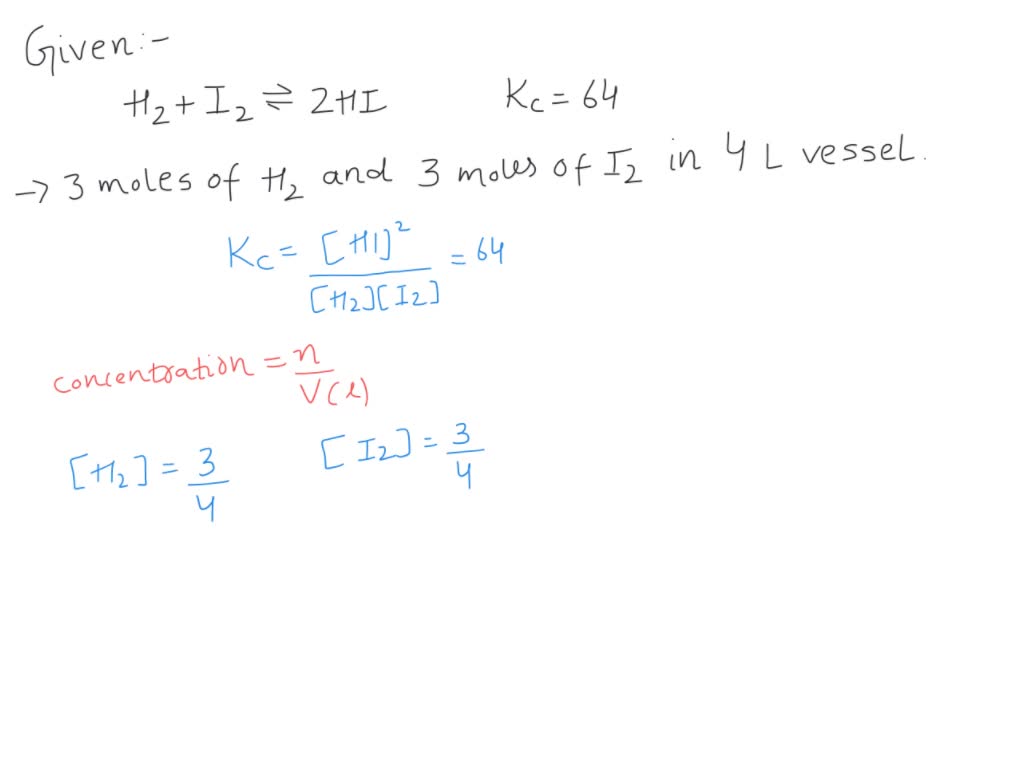 Given:-
H₂ + I₂ ⇌ 2HI Kc = 64
→ 3 moles of H₂ and 3 moles of I₂ in 4 L vessel.
Kc = [HI]² / [H₂][I₂] = 64
concentration = n / V(l)
[H₂] = 3/4 [I₂] = 3/4